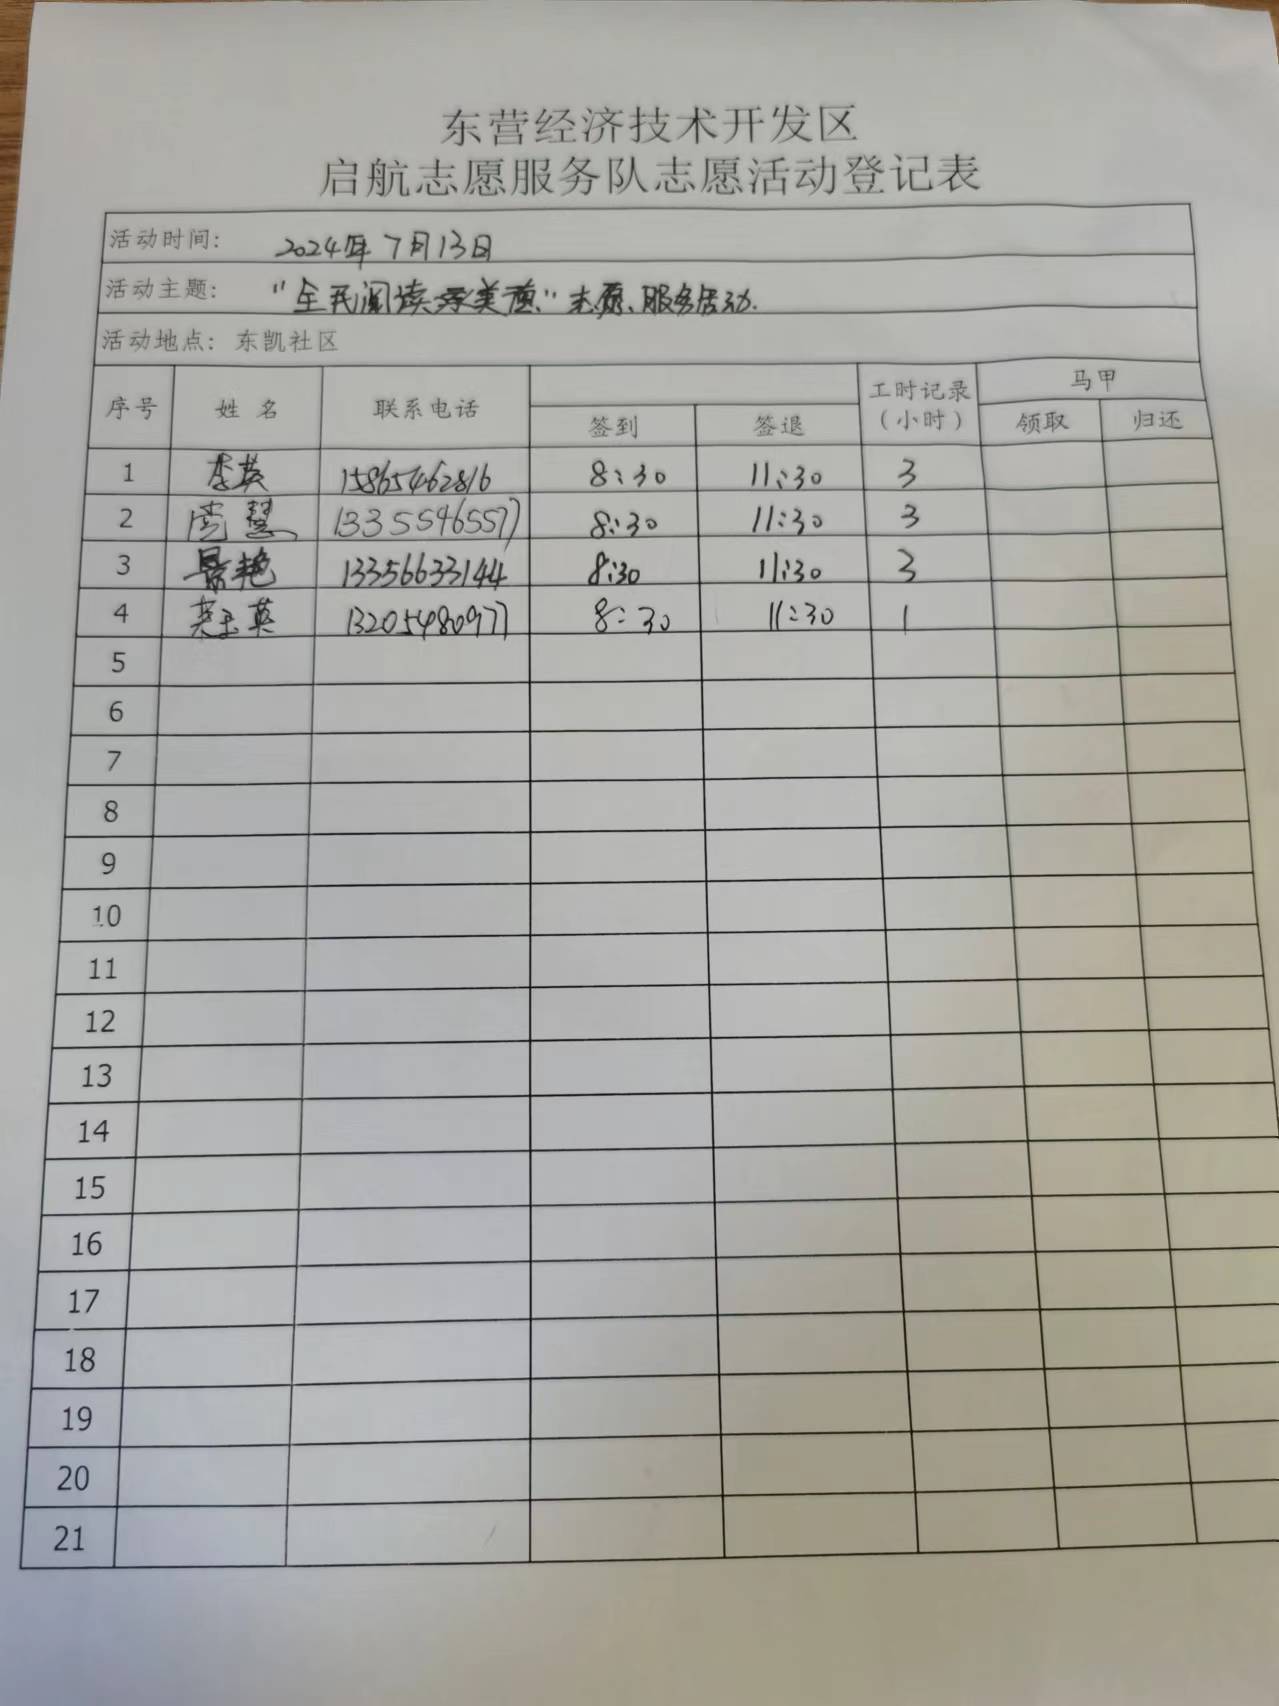 东营经济技术开发区
启航志愿服务队志愿活动登记表
活动时间: 2024年7月13日
活动主题: "全民阅读 美德"志愿服务活动.
活动地点: 东凯社区
序号 姓名 联系电话 签到 签退 工时记录(小时) 马甲 领取 归还
1 李英 15865462816 8:30 11:30 3
2 慧 13355546557 8:30 11:30 3
3 艳 13356633144 8:30 11:30 3
4 玉英 13205480977 8:30 11:30 1
5
6
7
8
9
10
11
12
13
14
15
16
17
18
19
20
21